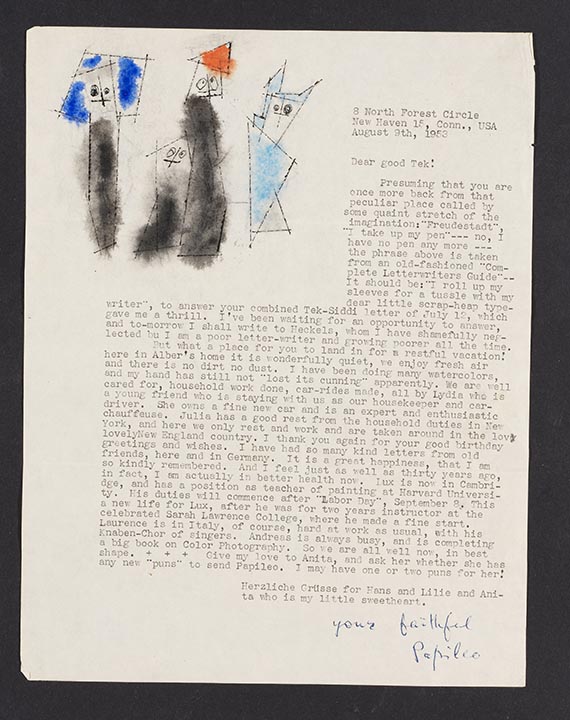 8 North Forest Circle
New Haven 15, Conn., USA
August 9th, 1953
Dear good Tek!
Presuming that you are
once more back from that
peculiar place called by
some quaint stretch of the
imagination:"Freudestadt",
"I take up my pen"--- no, I
have no pen any more ---
the phrase above is taken
from an old-fashioned "Com-
plete Letterwriters Guide"--
It should be:"I roll up my
sleeves for a tussle with my
dear little scrap-heap type-
writer", to answer your combined Tek-Siddi letter of July 12, which
gave me a thrill. I've been waiting for an opportunity to answer,
and to-morrow I shall write to Heckels, whom I have shamefully neg-
lected bu I am a poor letter-writer and growing poorer all the time.
But what a place for you to land in for a restful vacation!
here in Alber's home it is wonderfully quiet, we enjoy fresh air
and there is no dirt no dust. I have been doing many watercolors,
and my hand has still not "lost its cunning" apparently. We are well
cared for, household work done, car-rides made, all by Lydia who is
a young friend who is staying with us as our housekeeper and car-
driver. She owns a fine new car and is an expert and enthusiastic
chauffeuse. Julia has a good rest from the household duties in New
York, and here we only rest and work and are taken around in the lovy
lovelyNew England country. I thank you again for your good birthday
greetings and wishes. I have had so many kind letters from old
friends, here and in Germany. It is a great happiness, that I am
so kindly remembered. And I feel just as well as thirty years ago,
in fact, I am actually in better health now. Lux is now in Cambri-
dge, and has a position as teacher of painting at Harvard Universi-
ty. His duties will commence after "Labor Day", September 8. This
a new life for Lux, after he was for two years instructor at the
celebrated Sarah Lawrence College, where he made a fine start.
Laurence is in Italy, of course, hard at work as usual, with his
Knaben-Chor of singers. Andreas is always busy, and is completing
a big book on Color Photography. So we are all well now, in best
shape. + + + Give my love to Anita, and ask her whether she has
any new "puns" to send Papileo. I may have one or two puns for her!
Herzliche Grüsse for Hans and Lilie and Ani-
ta who is my little sweetheart.
your faithful
Papileo